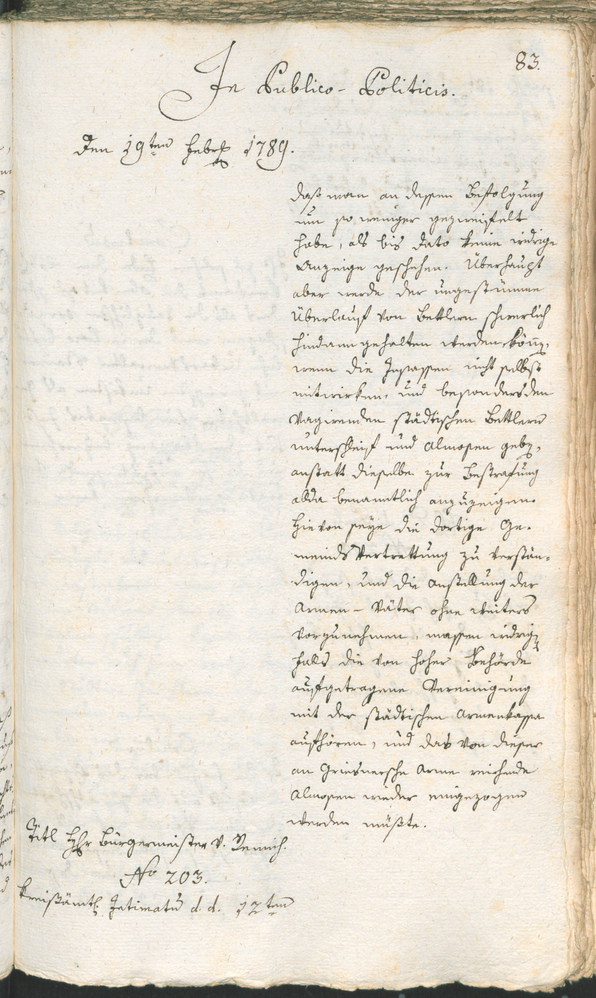 83.
In Publico-Politicis.
Den 19ten Febr 1789.
daß man an dessen Befolgung
um so weniger gezweifelt
habe, als bis dato keine widrige
Anzeige geschehen. Überhaupt
aber werde der ungestümme
Überlauf von Bettlern schwerlich
hindanngehalten werden könn,
wenn die Insassen nicht selbst
mitwirken, und besonders den
Vagirenden städtischen Bettlern
unterschleif und Almosen geben,
anstatt dieselbe zur Bestrafung
alda benamtlich anzuzeigen.
Hievon seye die dortige Ge-
meinds Vertrettung zu verstän-
digen, und die Anstellung der
Armen-Väter ohne weiters
vorzunehmen, massen widrigen
falls die von hoher Behörde
aufgetragene Vereinigung
mit der städtischen Armenkassa
aufhören, und das von dieser
an Griesnersche Arme reichende
Almosen wieder eingezogen
werden müßte.
Titl Hhr Bürgermeister v.
No 203.
Kreißämtl Intimatũ d. d. 12ten